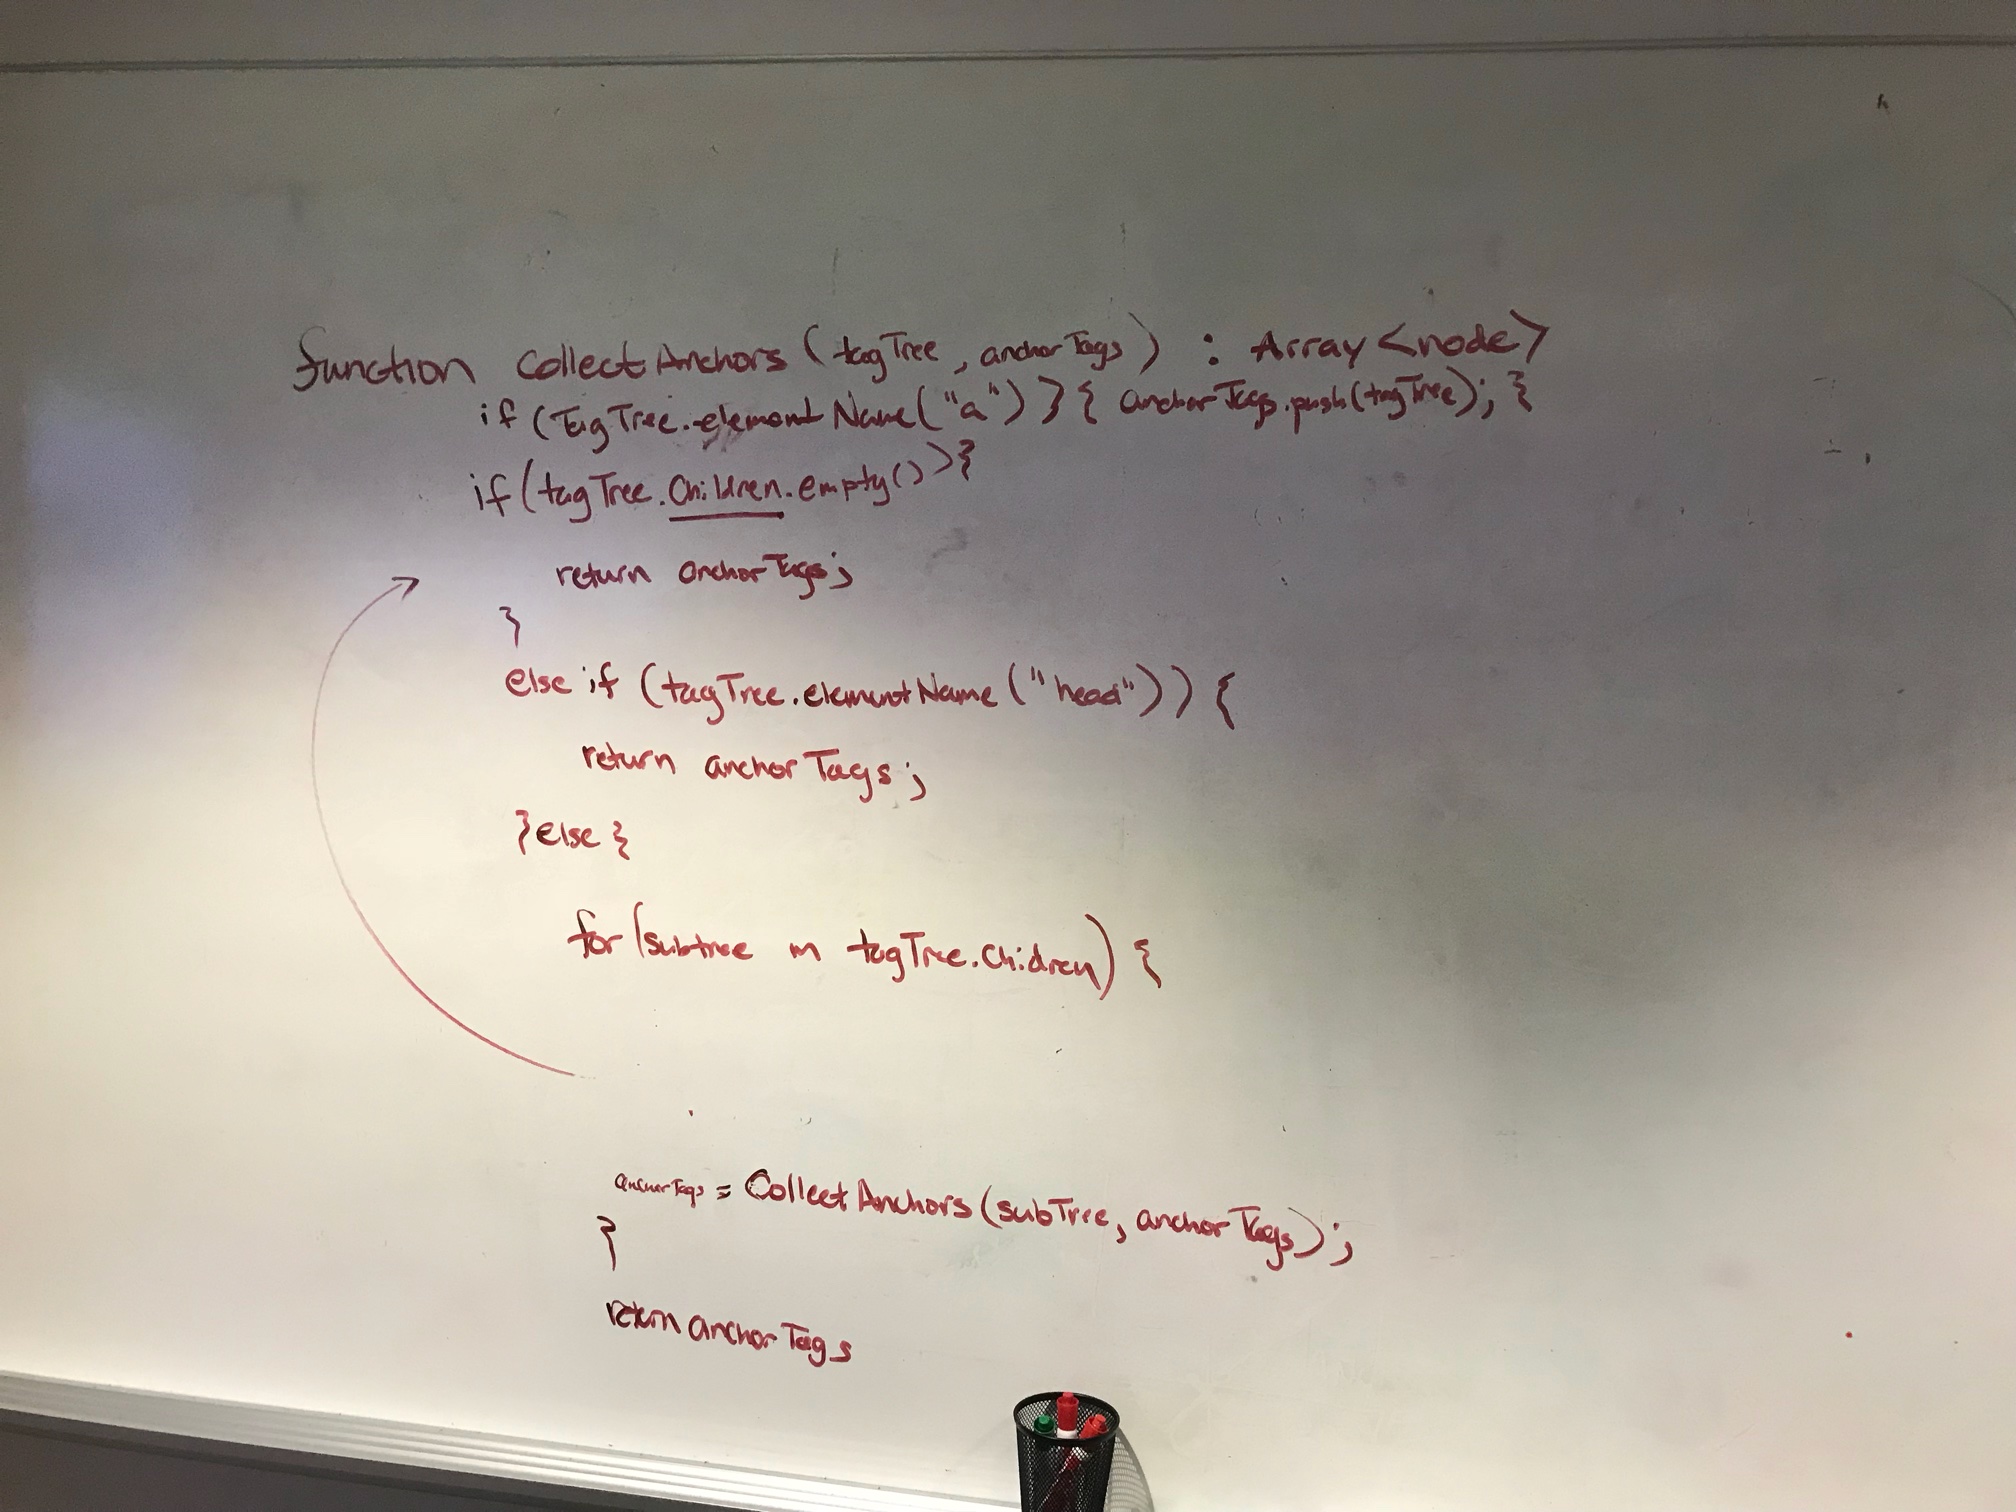 function collectAnchors (tagTree, anchorTags) : Array<node>
if (TagTree.elementName("a") } { anchorTags.push(tagTree); }
if (tagTree.Children.empty() ) {
return anchorTags;
}
else if (tagTree.elementName ("head")) {
return anchorTags;
} else {
for (subtree in tagTree.Chidren) {
anchorTags = CollectAnchors (subTree, anchorTags);
}
return anchorTags